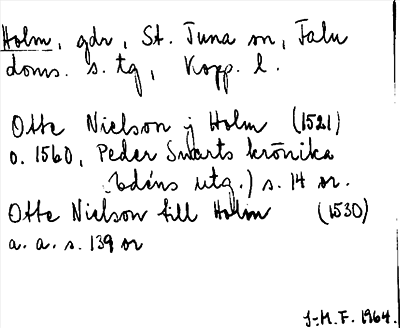 Holm, gdr, St. Tuna sn, Falu
doms. s. tg, Kopp. l.
Otte Nielson ij Holm (1521)
o. 1560, Peder Swarts krönika
Edéns utg.) s. 14 or.
Otte Nielson till Holm (1530)
a. a. s. 139 or
J-H.F. 1964.